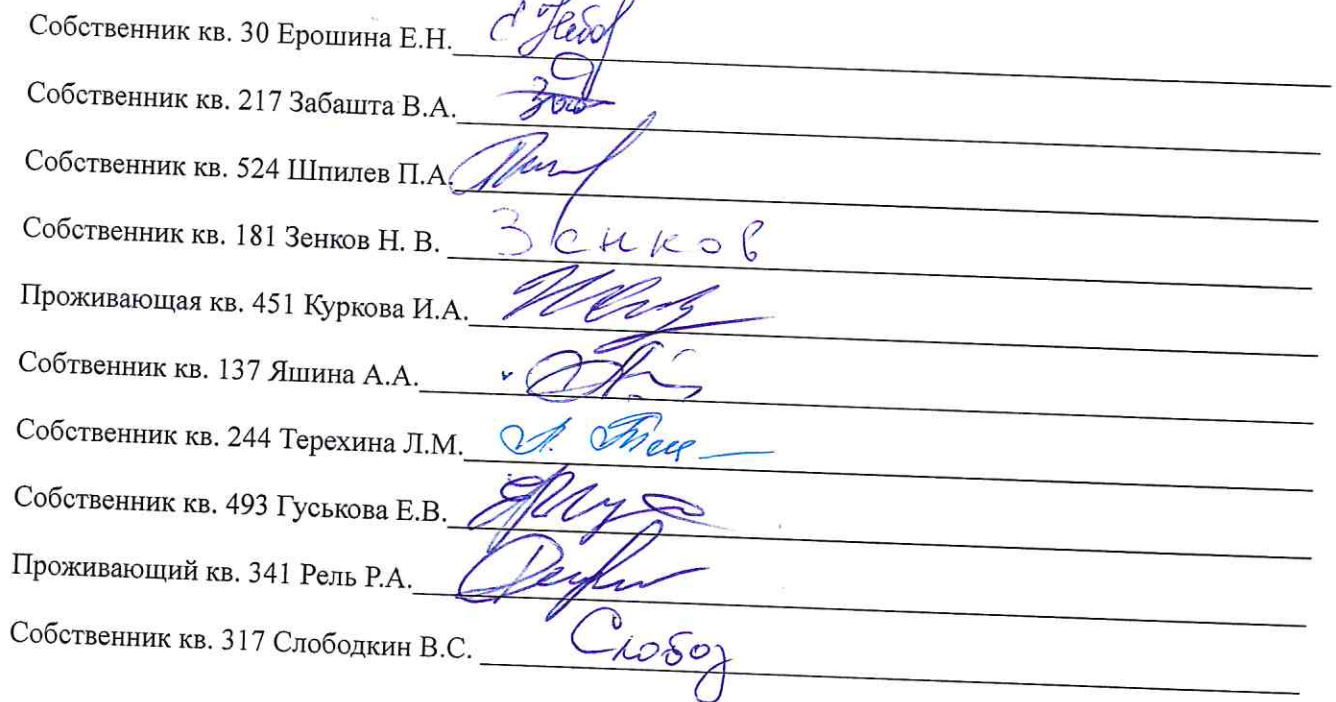 Собственник кв. 30 Ерошина Е.Н.
Собственник кв. 217 Забашта В.А.
Собственник кв. 524 Шпилев П.А.
Собственник кв. 181 Зенков Н. В. Зенков
Проживающая кв. 451 Куркова И.А.
Собтвенник кв. 137 Яшина А.А.
Собственник кв. 244 Терехина Л.М.
Собственник кв. 493 Гуськова Е.В.
Проживающий кв. 341 Рель Р.А.
Собственник кв. 317 Слободкин В.С. Слобод